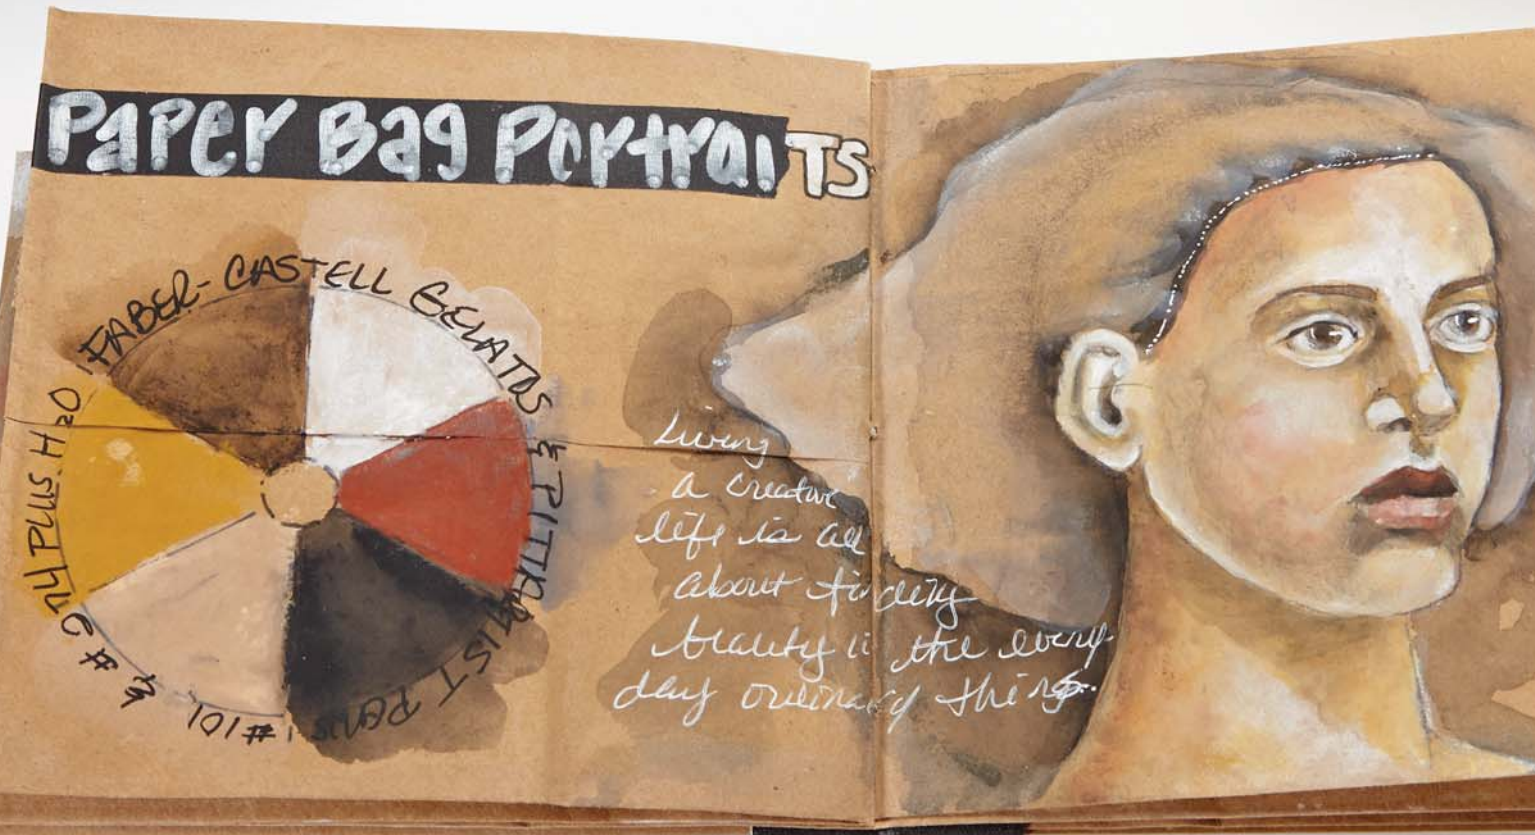 PAPER BAG PORTRAITS
FABER-CASTELL GELATOS & PITT ARTIST PENS #101 & #274 PLUS H2O
Living
a creative
life is all
about finding
beauty in the every-
day ordinary things..